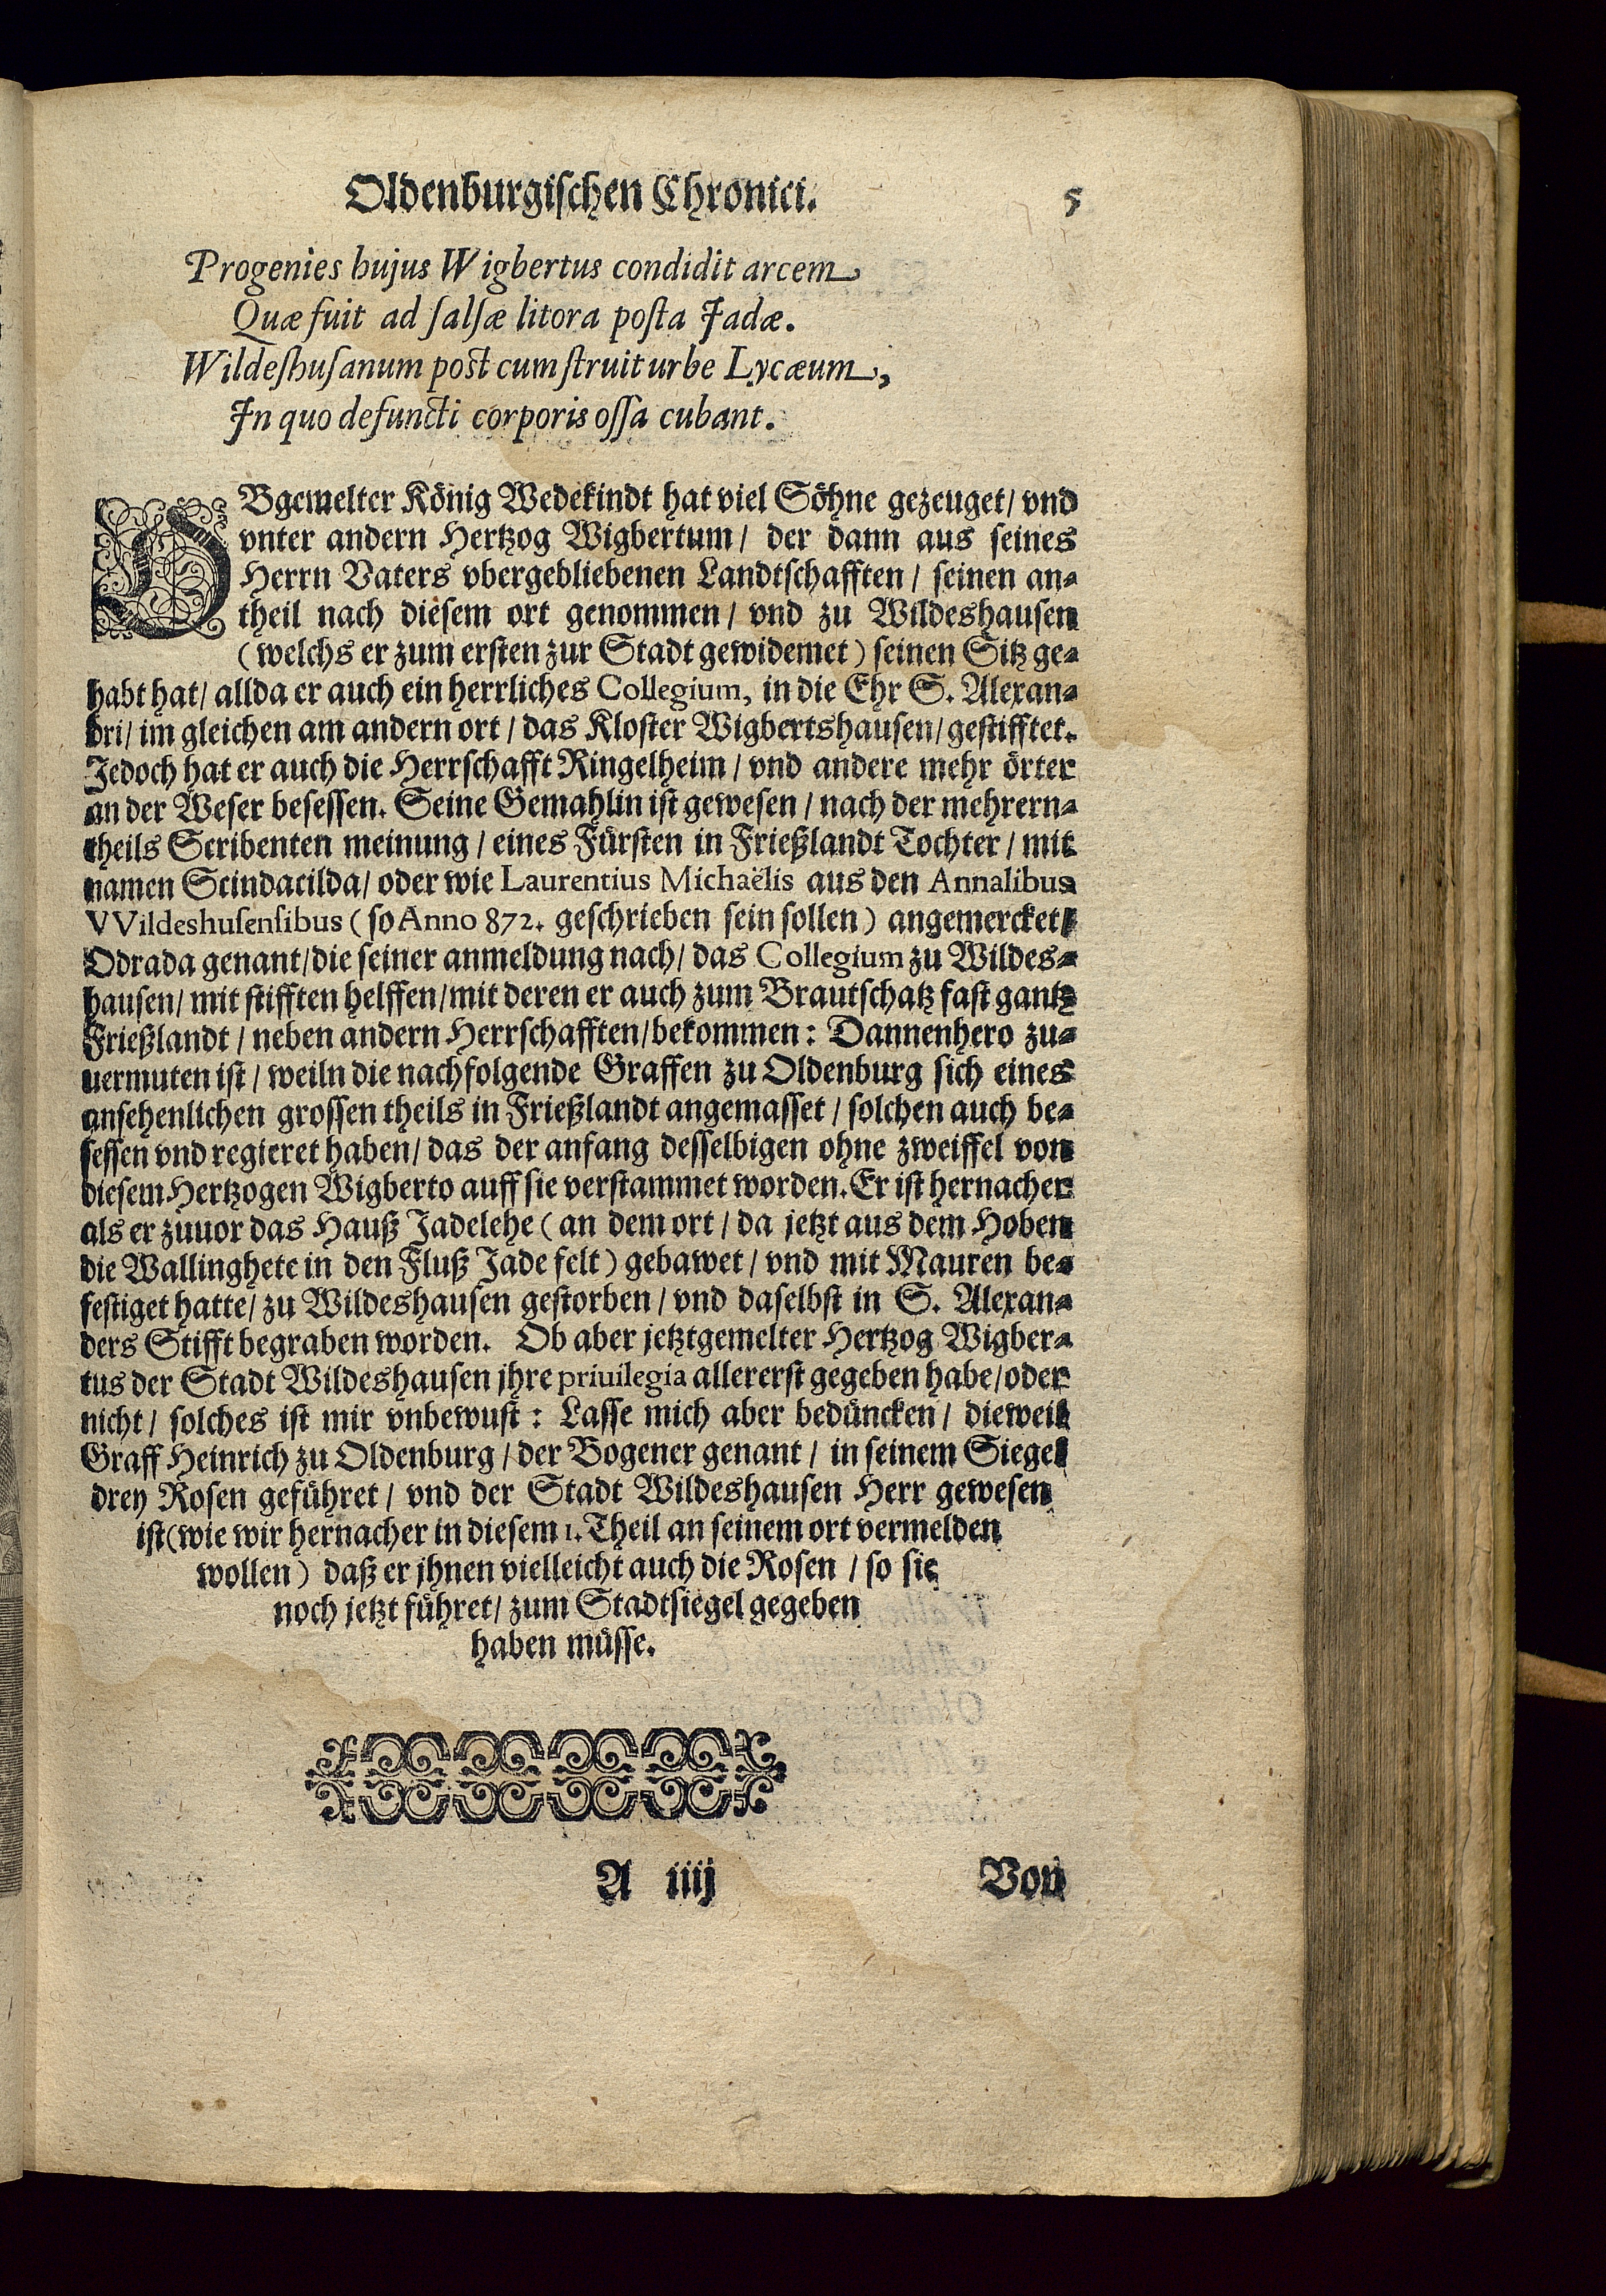 Oldenburgischen Chronici. 5
Progenies hujus Wigbertus condidit arcem
Quæ fuit ad ſalſæ litora poſta Jadæ.
Wildeſhuſanum poſt cum ſtruit urbe Lycæum,
In quo defuncti corporis oſſa cubant.
OBgemelter König Wedekindt hat viel Söhne gezeuget/ vnd
vnter andern Hertzog Wigbertum/ der dann aus seines
Herrn Vaters vbergebliebenen Landtschafften/ seinen an-
theil nach diesem ort genommen/ vnd zu Wildeshausen
(welchs er zum ersten zur Stadt gewidemet) seinen Sitz ge-
habt hat/ allda er auch ein herrliches Collegium, in die Ehr S. Alexan-
dri/ im gleichen am andern ort/ das Kloster Wigbertshausen/ gestifftet.
Jedoch hat er auch die Herrschafft Ringelheim/ vnd andere mehr örter
an der Weser besessen. Seine Gemahlin ist gewesen/ nach der mehrern-
theils Scribenten meinung/ eines Fürsten in Frießlandt Tochter/ mit
namen Scindacilda/ oder wie Laurentius Michaëlis aus den Annalibus
VVildeshuſenſibus (so Anno 872. geschrieben sein sollen) angemercket/
Odrada genant/ die seiner anmeldung nach/ das Collegium zu Wildes-
hausen/ mit stifften helffen/ mit deren er auch zum Brautschatz fast gantz
Frießlandt/ neben andern Herrschafften/ bekommen: Dannenhero zu-
uermuten ist/ weiln die nachfolgende Graffen zu Oldenburg sich eines
ansehenlichen grossen theils in Frießlandt angemasset/ solchen auch be-
sessen vnd regieret haben/ das der anfang desselbigen ohne zweiffel von
diesem Hertzogen Wigberto auff sie verstammet worden. Er ist hernacher
als er zuuor das Hauß Jadelehe (an dem ort/ da jetzt aus dem Hoben
die Wallinghete in den Fluß Jade felt) gebawet/ vnd mit Mauren be-
festiget hatte/ zu Wildeshausen gestorben/ vnd daselbst in S. Alexan-
ders Stifft begraben worden. Ob aber jetztgemelter Hertzog Wigber-
tus der Stadt Wildeshausen jhre priuilegia allererst gegeben habe/ oder
nicht/ solches ist mir vnbewust: Lasse mich aber bedüncken/ dieweil
Graff Heinrich zu Oldenburg/ der Bogener genant/ in seinem Siegel
drey Rosen geführet/ vnd der Stadt Wildeshausen Herr gewesen
ist (wie wir hernacher in diesem 1. Theil an seinem ort vermelden
wollen) daß er jhnen vielleicht auch die Rosen/ so sie
noch jetzt führet/ zum Stadtsiegel gegeben
haben müsse.
A iiij Von